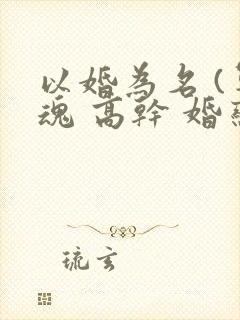 以婚為名(
魂 高幹 婚
琉玄